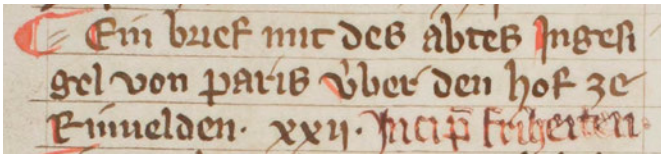 ¶ Ein brief mit des abtes Ingesi
gel von paris vͦber den hof ze
Rinuelden · xxij · Incip̄ friheiten ·